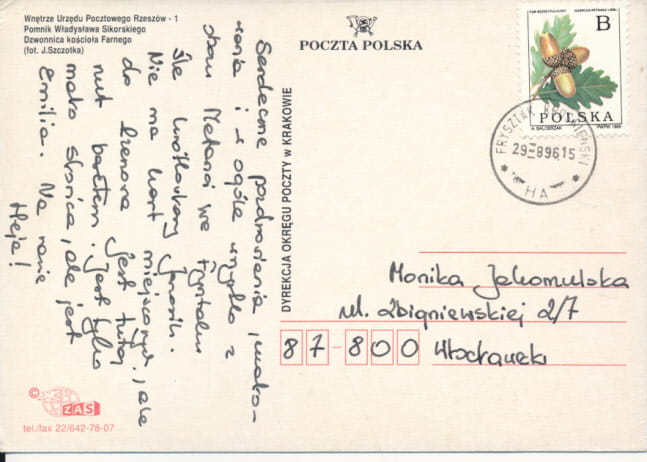 Wnętrze Urzędu Pocztowego Rzeszów - 1
Pomnik Władysława Sikorskiego
Dzwonnica kościoła Farnego
(fot. J.Szczotka)
Serdeczne pozdrowienia,
i w ogóle wszystko z
we
Śle
Nie ma kart miejscowych, ale
do jest tutaj
nut . Jest tylko
mało słońca, ale jest
Emilia. Na razie
Heja!
©
ZAS
tel./fax 22/642-78-07
POCZTA POLSKA
DYREKCJA OKRĘGU POCZTY w KRAKOWIE
B
POLSKA
A. BALCERZAK
PWPW 1995
FRYSZTAK KROŚNIEŃSKI
29.-8.96.15
* HA *
Monika Jakomulska
ul. Zbigniewskiej 2/7
87-800 Włocławek